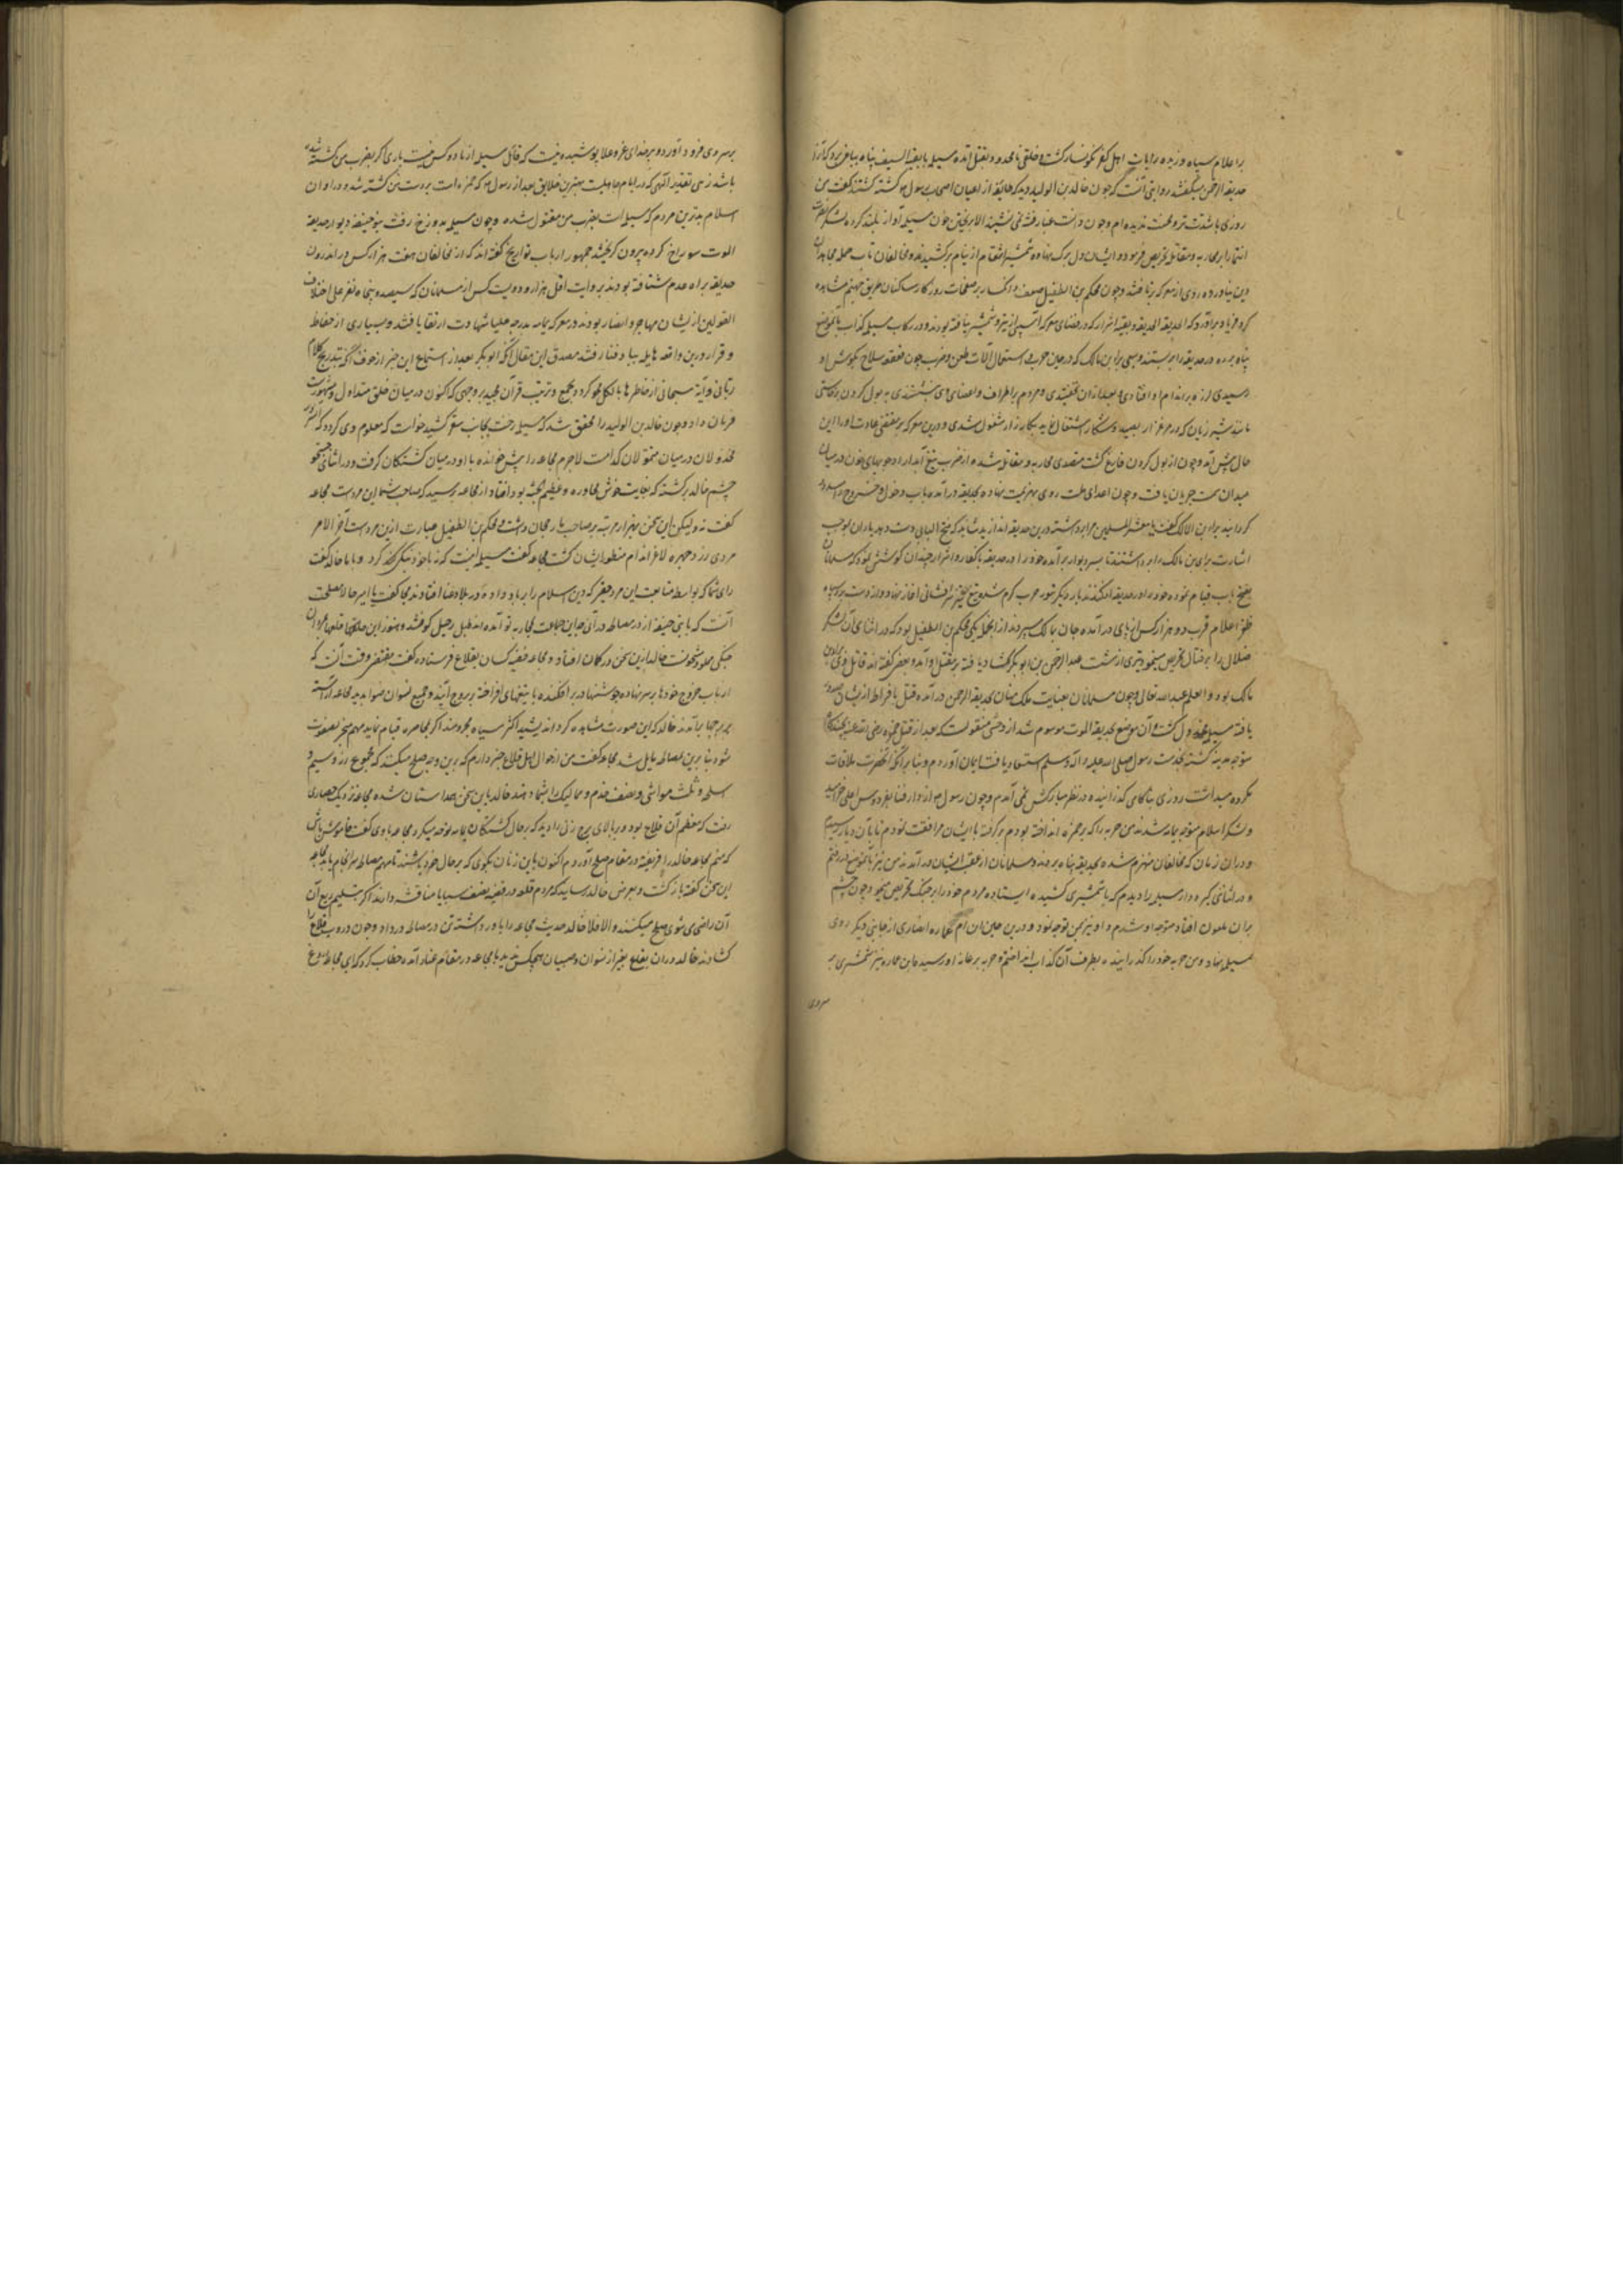 بر اعلام سپاه وزیده رایات اهل کفر نگونسار کشت و خلقی نامحدود بقتل آمده مسیلمه با بقیة السیف پناه بباغی برد که آنرا
حدیقة الرحمن میکفتند روایتی آنست که چون خالد بن الولید دید که طایفه از اعیان اصحاب رسول کشته کشتند کفت من
روزی باشدت تر و محنت ندیده ام و چون دانست
انتما را بر محاربه و مقاتله تحریص فرمود و ایشان دل بر مرک نهاده شمشیر انتقام از نیام برکشیدند و مخالفان تاب حمله مجاهدان
دین نیاورده روی از معرکه برتافتند و چون محکم بن الطفیل ضعف و انکسار بر صفحات روزکار ساکنان طریق جهنم مشاهده
کرد فریاد برآورد که الحدیقه الحدیقه و بقیه اشرار که در فضای معرکه
پناه برده در حدیقه را بربستند و براء بن مالک که در حین حرب استعمال آلات طعن و ضرب چون قعقعه سلاح بکوش او
رسیدی لرزه بر اندام او افتادی و بعد از آن
مانند شیر ژیان که در مرغزار بصید و شکار اشتغال نماید بکارزار مشغول شدی و درین معرکه بر مقتضی عادت او را این
حال پیش آمد و چون از بول کردن فارغ کشت متصدی محاربه و مقاتله شده از ضرب تیغ آبدار او جویهای خون در میان
میدان سمت جریان یافت و چون اعدای ملت روی بهزیمت نهاده بحدیقه درآمده باب دخول و خروج را مسدود
کردانیدند براء بن مالک کفت یا معشر المسلمین مرا برداشته درین حدیقه اندازید شاید که مفتح الابواب
اشارت براء بن مالک را برداشتند تا بسر دیوار برآمده خود را در حدیقه
بفتح باب قیام نموده خود را در حدیقه افکندند بار دیکر تنور حرب کرم شد
ظفر اعلام قرب دو هزار کس از پای درآمده جان بمالک سپردند از آنجمله یکی محکم بن الطفیل بود که در اثنای آن لشکر
ضلال را بر قتال تحریص مینمود تیری از شست عبد الرحمن بن ابو بکر کشاد یافته بر مقتل او آمد و بعضی کفته اند قاتل وی براء بن
مالک بود و العلم عند الله تعالی و چون مسلمانان بعنایت ملک منان بحدیقة الرحمن درآمده قتل بافراط از ایشان صدور
یافت مسیلمه مخذول کشت و آن موضع بحدیقة الموت موسوم شد از وحشی منقولست که بعد از قتل حمزه رضی الله عنه بچندکاه
متوجه مدینه کشته بخدمت رسول صلی الله علیه و آله و سلم استسعاد یافت ایمان آوردم و بنا بر آنکه آنحضرت ملاقات
مکروه میداشت روزی بناکامی کذرانیده در نظر مبارکش نمی آمدم و چون رسول ص از دار فنا بفردوس اعلی خرامید
و لشکر اسلام متوجه یمامه شدند من حربه را که بر حمزه انداخته بودم برکرفته با ایشان مرافقت نمودم تا بآن دیار رسیدیم
و در آن زمان که مخالفان منهزم شده بحدیقه پناه بردند و مسلمانان از عقب ایشان درآمدند من نیز بآنموضع در رفتم
و در اثنای کیر و دار مسیلمه را دیدم که با شمشیری کشیده ایستاده مردم خود را بر جنک تحریص مینمود و چون چشم
بران ملعون افتاد متوجه او شدم و او نیز بمن توجه نمود و درین حین ابن ام عماره انصاری از جانبی دیکر روی
بمسیلمه نهاد و من حربه خود را کذرانیده بطرف آن کذاب انداختم و حربه بر عانه او رسید و ابن عماره نیز شمشیری بر
سر وی
بر سر وی فرود آورد و بر خدای عز و علا پوشیده نیست که قاتل مسیلمه از ما دو کس کیست باری اکر بضرب من کشته شده
باشد زهی تقدیر الهی که در ایام جاهلیت بهترین خلایق بعد از رسول ص که حمزه است بر دست من کشته شد و در اوان
اسلام بدترین مردم که مسیلمه است بضرب من مقتول شده و چون مسیلمه بدوزخ رفت بنو حنیفه دیوار حدیقة
الموت سوراخ کرده بیرون کریختند جمهور ارباب تواریخ کفته اند که از مخالفان هفت هزار کس در اندرون
حدیقه براه عدم شتافته بودند و بروایت اقل هزار و دویست کس از مسلمانان که سیصد و پنجاه نفر علی اختلاف
القولین از ایشان مهاجر و انصار بودند در معرکه یمامه بدرجه علیای شهادت ارتقا یافتند و بسیاری از حفاظ
و قراء درین واقعه هایله بباد فنا رفتند مصدق این مقال آنکه ابو بکر بعد از استماع این خبر از خوف آنکه بتدریج کلام
ربانی و آیة سبحانی از خاطرها بالکل محو کردد بجمع و ترتیب قرآن مجید بر وجهی که اکنون در میان خلق متداول و مشهورست
فرمان داد و چون خالد بن الولید را محقق شد که مسیلمه رخت بجانب سقر کشید خواست که معلوم وی کردد که آن
مخذولان در میان مقتولان کدامست لاجرم مجاعه را پیش خوانده با او در میان کشتکان کرفت و در اثنای جستجو
چشم خالد بر کشته که بغایت خوش محاوره و عظیم الجثه بود افتاد از مجاعه پرسید که صاحب شما این مردست مجاعه
کفت نه ولیکن این شخص بهزار مرتبه بر صاحب ما رجحان داشت و محکم بن الطفیل عبارت ازین مردست آخر الامر
مردی زرد چهره لاغر اندام منظور ایشان کشت مجاعه کفت مسیلمه اینست که نه با خود نیکی کرد و نه با ما خالد کفت
رای شما که بواسطه متابعت این مرد حقیر که دین اسلام را بر باد داده در بلا و عنا افتادند مجاعه کفت یا امیر حالا مصلحت
آنست که با بنی حنیفه از در مصالحه درآئی چه این جماعت
جنکی مملو و مشحونست خالد ازین سخن در کمان افتاد و مجاعه خفیه کسان بقلاع فرستاده کفت مقتضی وقت آنست که
ارباب خروج خودها بر سر نهاده جوشنها در بر افکنده با تیغهای افراخته بر بروج آیند و جمیع نسوان
بر برجها برآمدند خالد که این صورت مشاهده کرد اندیشید اکثر سپاه مجروحند اکر بمحاصره قیام نماید مهم منجر بصعوبت
شود بنابرین بمصالحه مایل شد مجاعه کفت من از احوال اهل قلاع خبر دارم که برین وجه صلح میکنند که مجموع زر و سیم و
اسلحه و ثلث مواشی و نصف خدم و ممالیک را بشما دهند خالد باین سخن همداستان شده مجاعه نزدیک حصاری
رفت که معظم آن قلاع بود و بر بالای برج زنی را دید که بر حال کشتکان یمامه نوحه میکرد مجاعه با وی کفت خاموش باش
که منم مجاعه خالد را فریفته در مقام صلح آوردم اکنون باین زنان بکوی که بر حال خود باشند تا مهم مصالحه سرانجام یابد مجاعه
این سخن کفته بازکشت و بعرض خالد رسانید که مردم قلعه در قضیه نصف سبایا مناقشه دارند اکر بتسلیم ربع آن
آن راضی می شوی صلح میکنند و الا فلا خالد حدیث مجاعه را باور داشته تن در مصالحه در داد و چون دروب قلاع را
کشادند خالد در آن بقاع بغیر از نسوان و صبیان هیچکس ندید با مجاعه در مقام عتاب آمده خطاب کرد که ای مجاعه دروغ